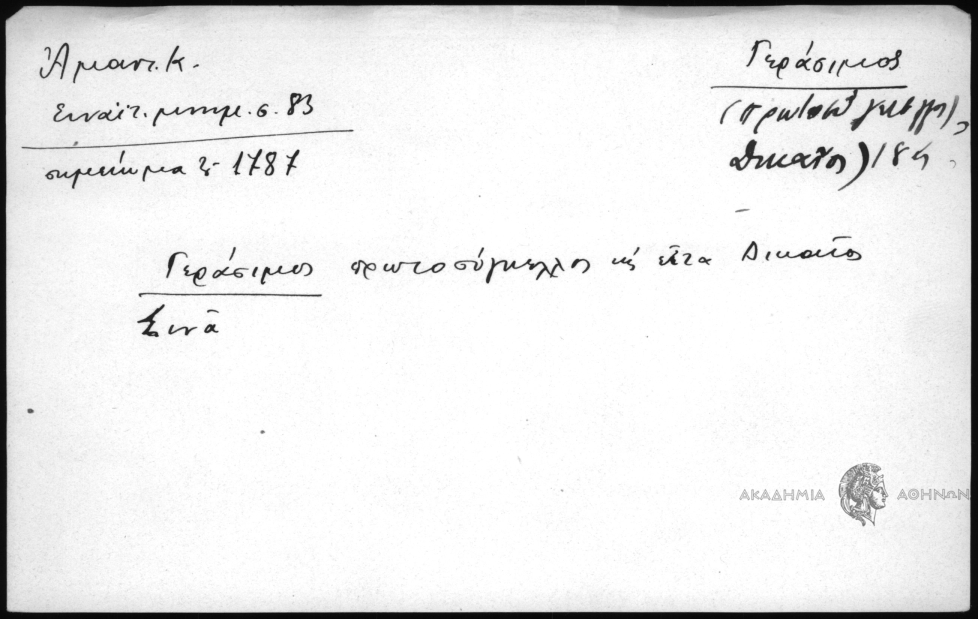 Ἀμαντ. Κ.
Σιναϊτ. μνημ. σ. 83
σημείωμα 1787
Γεράσιμος
Δικαῖος)
Γεράσιμος πρωτοσύγκελλος κ εἶτα Δικαῖος
Σινᾶ
ΑΚΑΔΗΜΙΑ ΑΘΗΝΩΝ